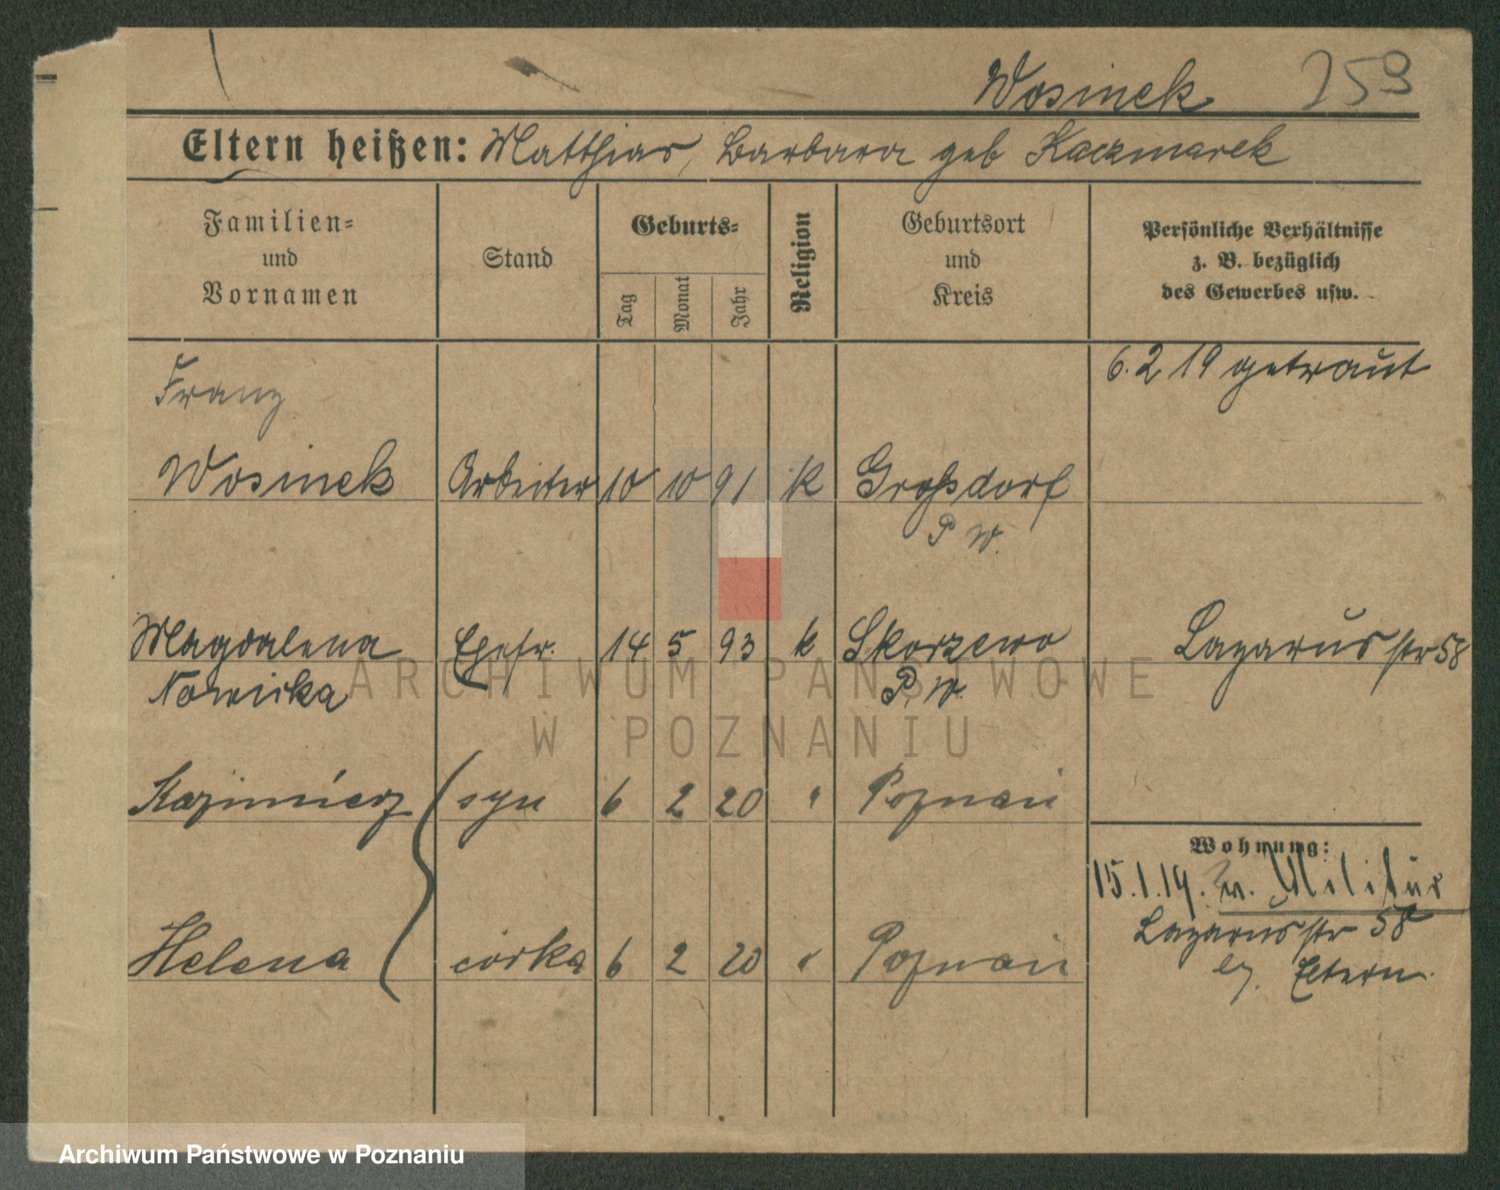 Wosinek 259
Eltern heißen: Matthias, Barbara geb Kaczmarek
Familien= und Vornamen
Stand
Geburts=
Tag Monat Jahr
Religion
Geburtsort und Kreis
Persönliche Verhältnisse z. B. bezüglich des Gewerbes usw.
6. 2 19 getraut
Franz
Wosinek Arbeiter 10 10 91 k Großdorf
P. W.
Magdalena Ehefr. 14 5 93 k Skorzewo Lazarusstr 58
Nowicka P. W.
Kazimierz syn 6 2 20 " Poznań
Wohnung:
15.1.19. v. Militär
Lazarusstr 58
Helena córka 6 2 20 " Poznań
Eltern.
ARCHIWUM PAŃSTWOWE
W POZNANIU
Archiwum Państwowe w Poznaniu